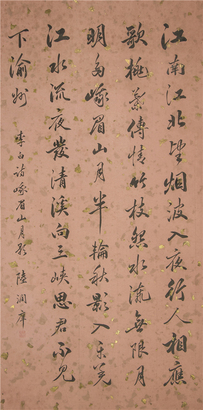 江南江北皆烟波入夜行人相應
歌桃葉傳情竹枝怨水流無限月
明多峨眉山月半輪秋影入平羌
江水流夜發清溪向三峽思君不見
下渝州
李白詩峨眉山月歌 陸潤庠